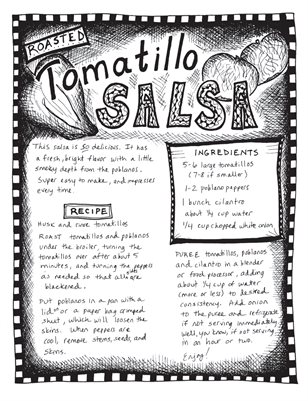 ROASTED
Tomatillo
SALSA
This salsa is so delicious. It has
a fresh, bright flavor with a little
smokey depth from the poblanos.
Super easy to make, and impresses
every time.
INGREDIENTS
5-6 large tomatillos
(7-8 if smaller)
1-2 poblano peppers
1 bunch cilantro
about 1/4 cup water
1/4 cup chopped white onion
RECIPE
HUSK and rinse tomatillos
ROAST tomatillos and poblanos
under the broiler, turning the
tomatillos over after about 5
minutes, and turning the peppers
as needed so that all sides are
blackened.
PUT poblanos in a pan with a
lid or a paper bag crimped
shut, which will loosen the
skins. When peppers are
cool, remove stems, seeds, and
skins.
PUREE tomatillos, poblanos
and cilantro in a blender
or food processor, adding
about 1/4 cup of water
(more or less) to desired
consistency. Add onion
to the puree and refrigerate
if not serving immediately.
Well, you know, if not serving
in an hour or two.
Enjoy!